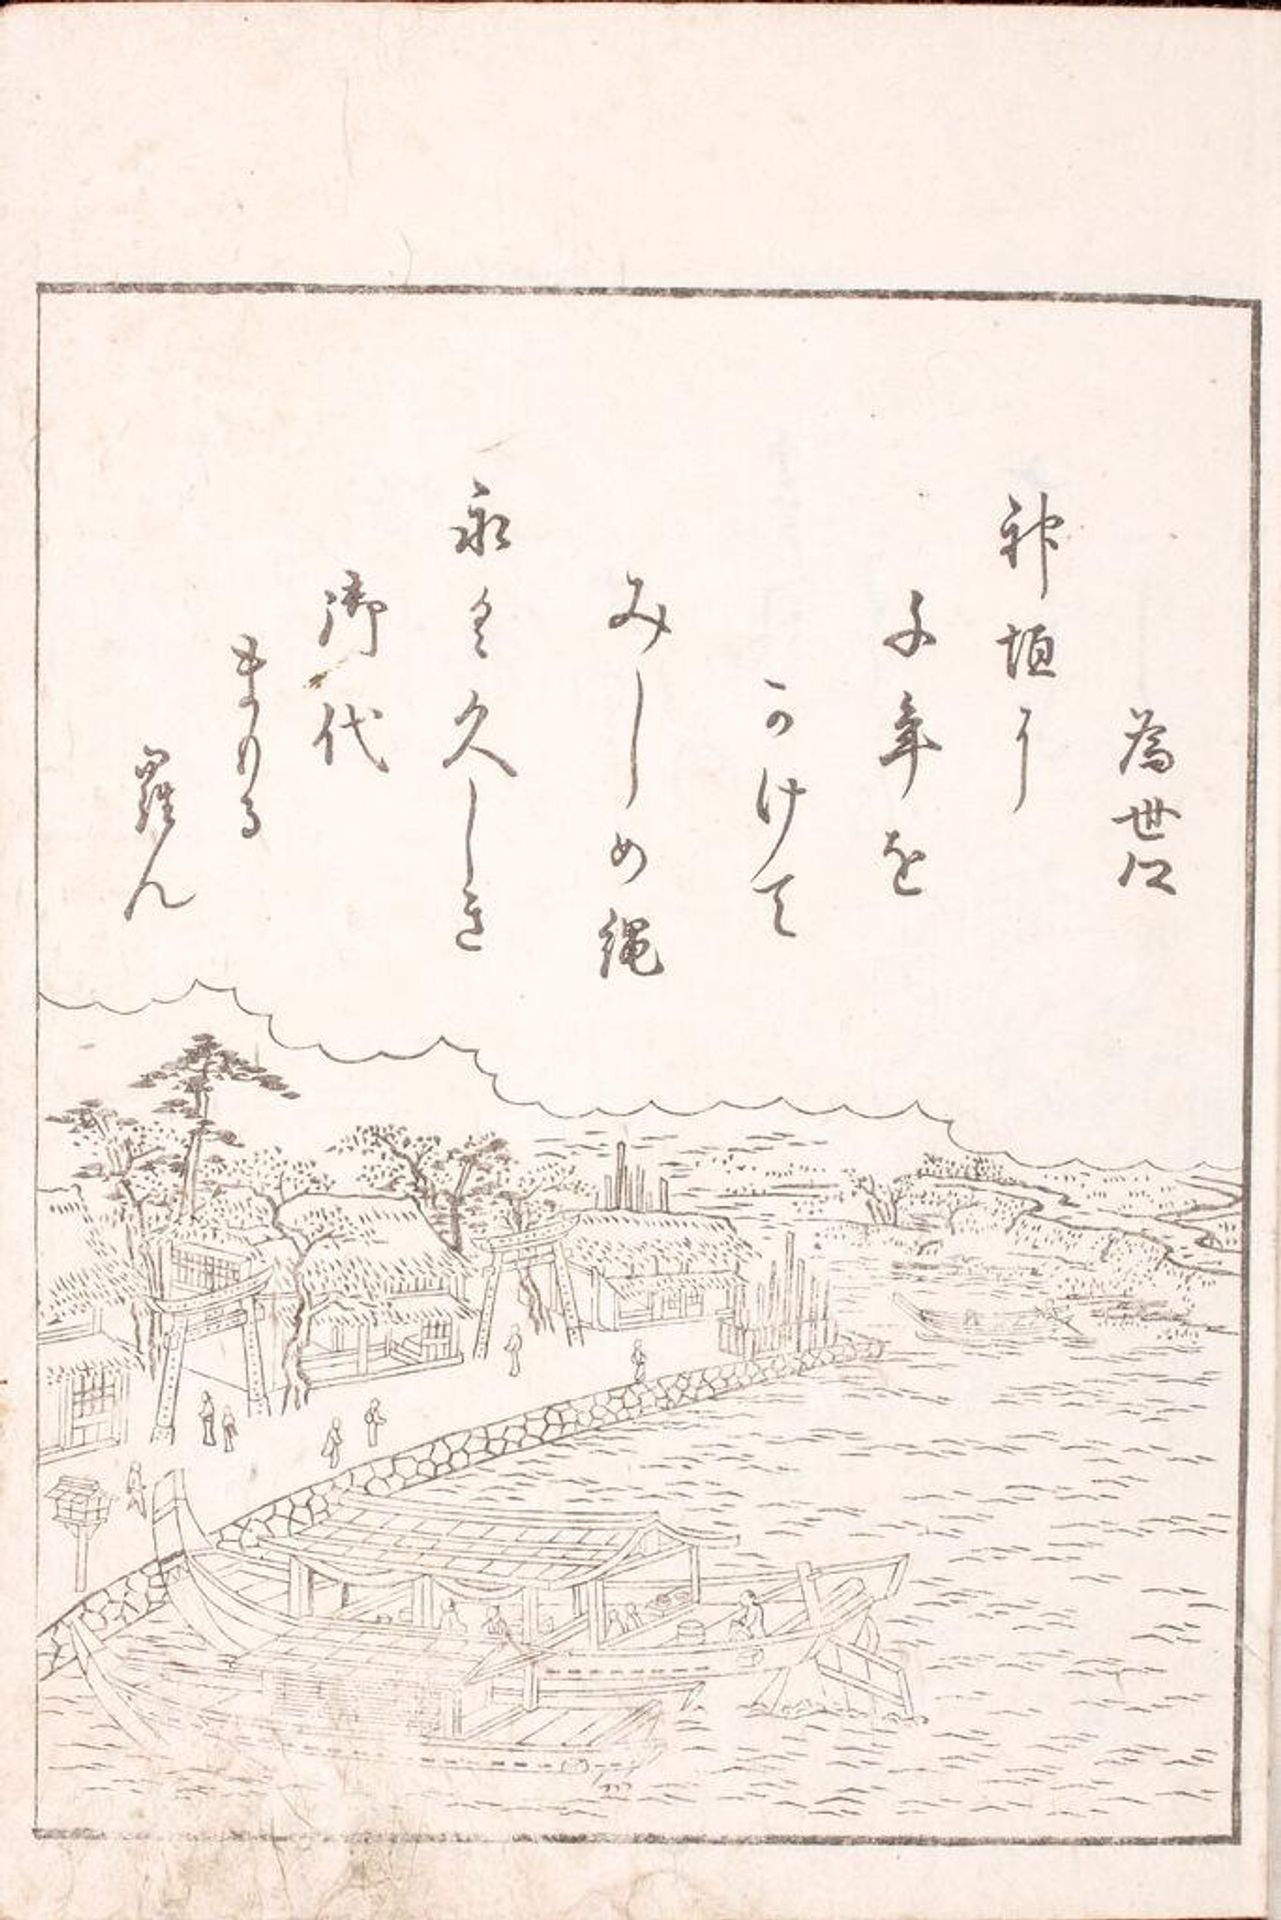 為世公
神垣に
千年を
かけて
みしめ縄
永く久しき
御代
まもる
羅ん